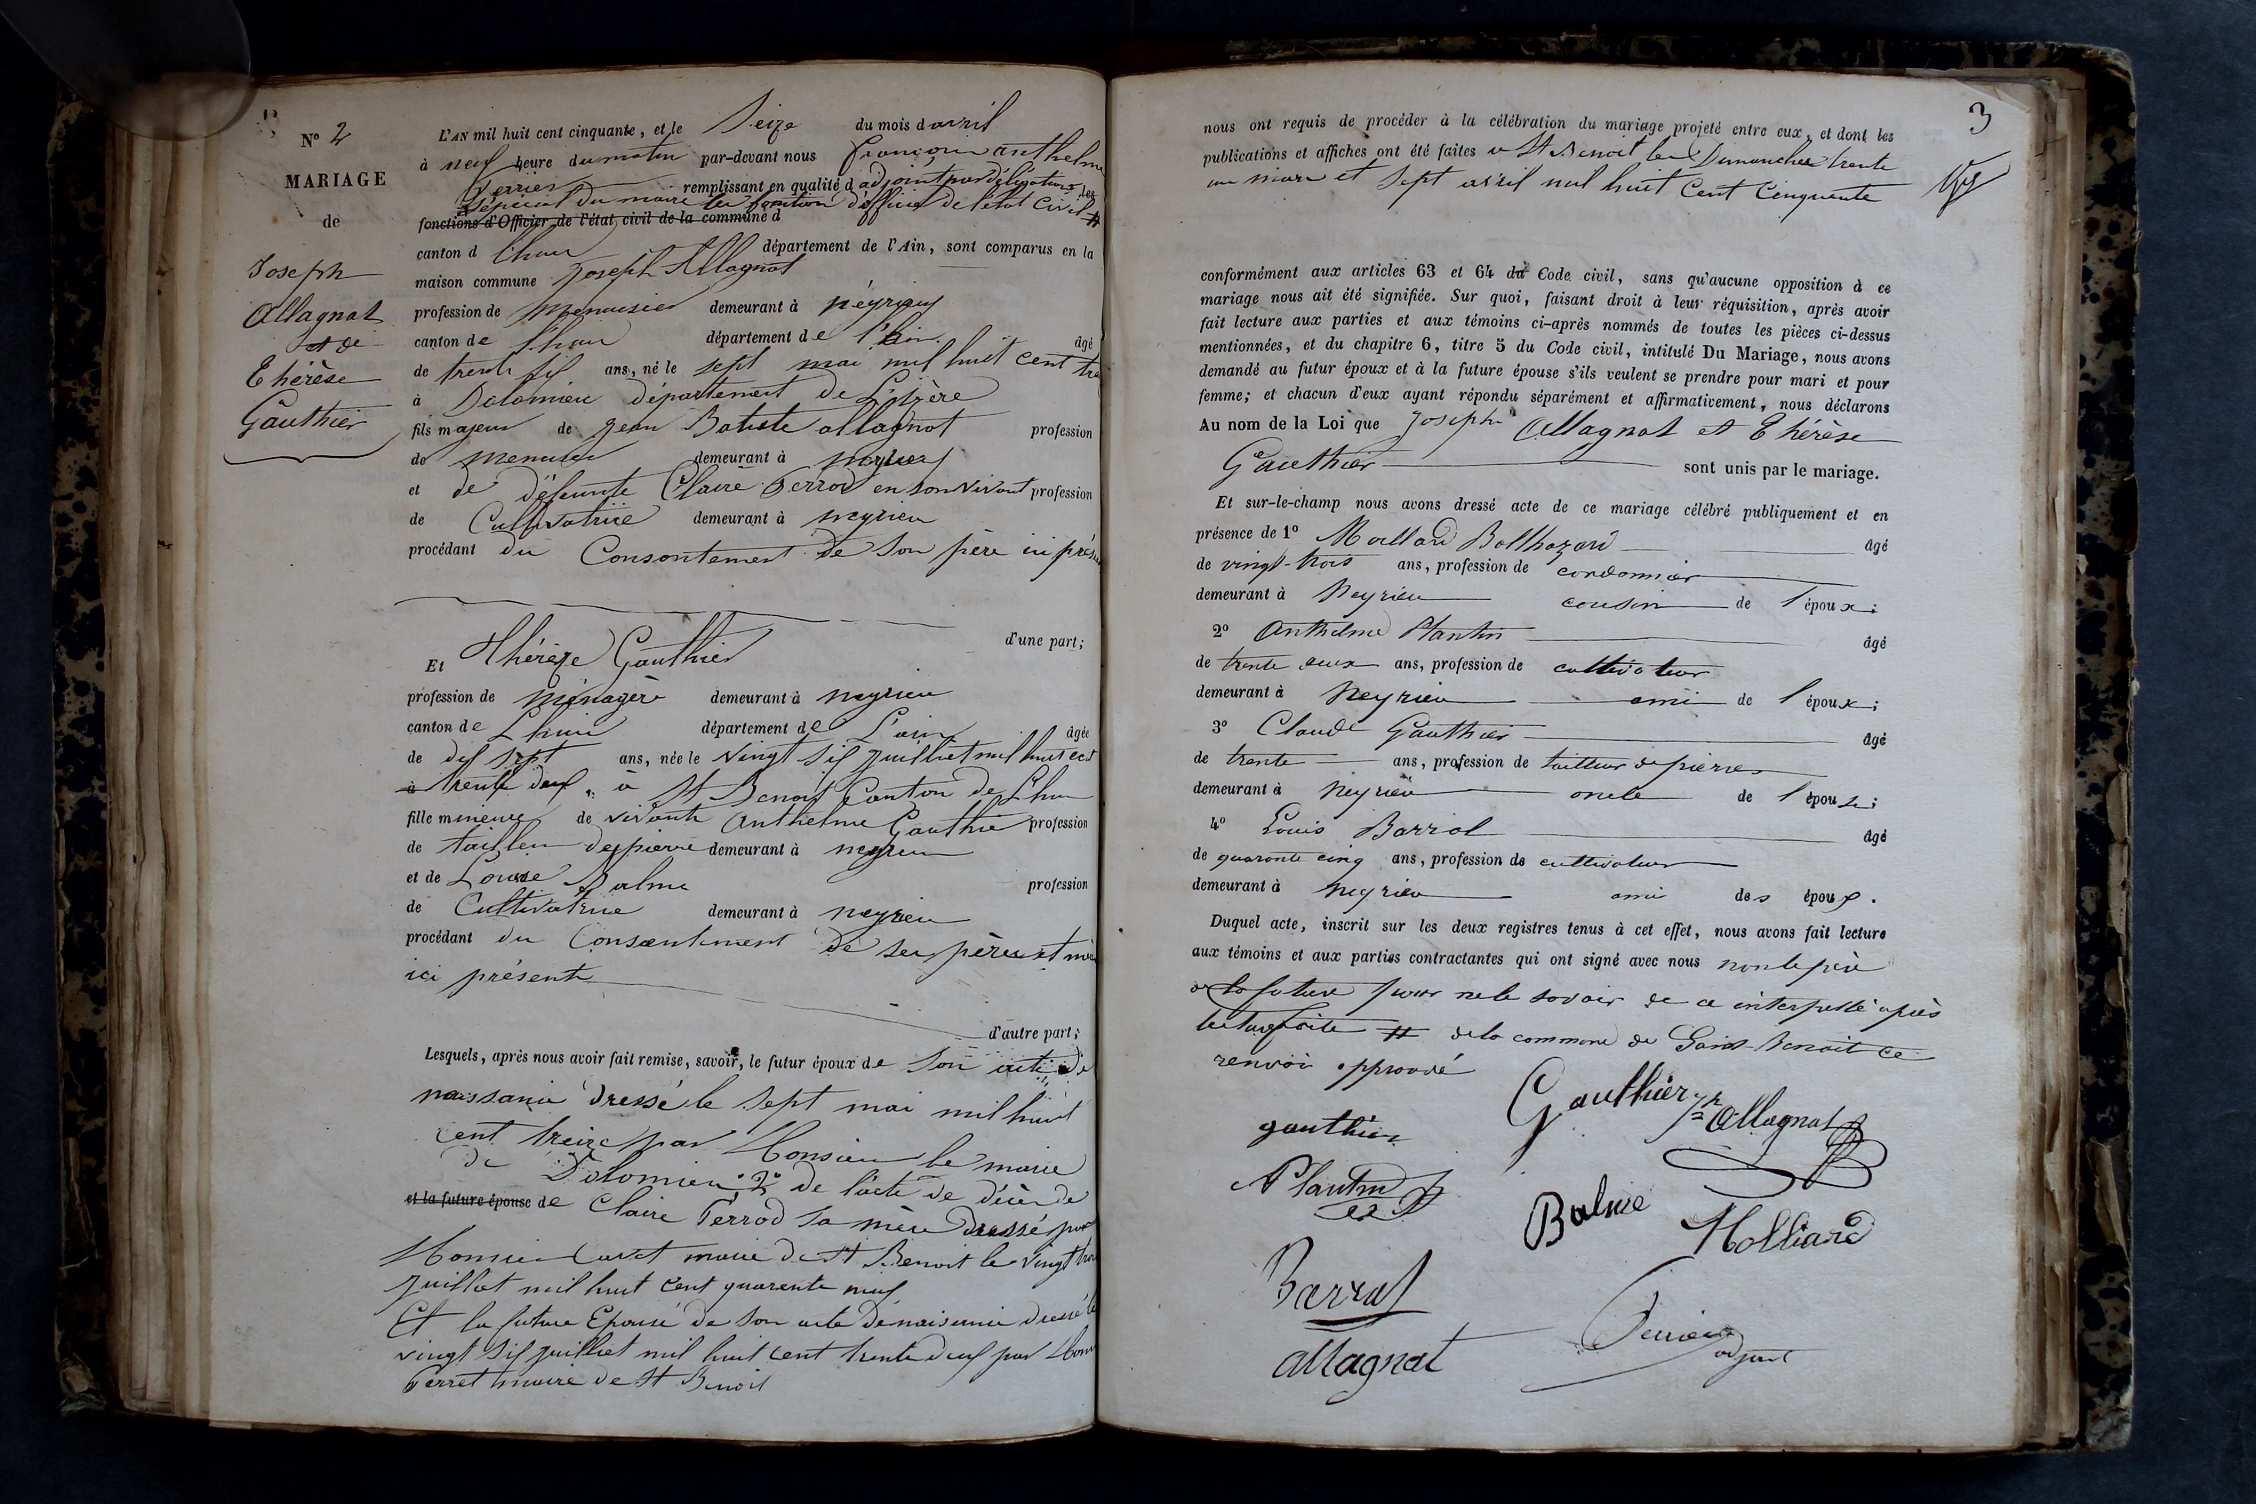 N° 2
MARIAGE
de
Joseph
Allagnat
et de
Thérèse
Gauthier
L'AN mil huit cent cinquante, et le Seize du mois d avril
à neuf heure du matin par-devant nous françois anthelme
Perrier remplissant en qualité d adjoint par délégation
spécial du maire les fonction d'officier de l'état civil #
fonctions d'Officier de l'état civil de la commune d
canton d Lhuis département de l'Ain, sont comparus en la
maison commune Joseph Allagnat
profession de Menuisier demeurant à néyrieux
canton de Lhuis département de l'ain âgé
de trente six ans, né le sept mai mil huit cent
à Dolomieu département de L'isère
fils majeur de jean Batiste allagnat profession
de menuisier demeurant à neyrieu
et de défeunte Claire Perrod en son vivant profession
de Cultivatrice demeurant à neyrieu
procédant du Consentement de son père ici
d'une part;
Et Thérèze Gauthier
profession de ménagère demeurant à neyrieu
canton de Lhuis département de L'ain âgée
de dix sept ans, née le vingt six juilliet mil huit cent
à trente deux à St Benoit Canton de Lhuis
fille mineure de vivante Anthelme Gauthier profession
de tailleur de pierre demeurant à neyrieu
et de Louise Balme profession
de Cultivatrice demeurant à neyrieu
procédant du Consentement de ses père et mère
ici présente
d'autre part;
Lesquels, après nous avoir fait remise, savoir, le futur époux de son acte de
naissance dressé le sept mai mil huit
cent treize par Monsieur le maire
de Dolomieu 2° de l'acte de décès de
et la future épouse de Claire Perrod sa mère dressé par
Monsieur maire de St Benoit le vingt
juillet mil huit cent quarente neuf
Et la future Epouse de son acte de naissance dressé le
vingt six juilliet mil huit cent trente deux par
Perret maire de St Benoit
3
nous ont requis de procéder à la célébration du mariage projeté entre eux, et dont les
publications et affiches ont été faites a St Benoit les Dimanches trente
un mars et sept avril mil huit cent cinquante
conformément aux articles 63 et 64 du Code civil, sans qu'aucune opposition à ce
mariage nous ait été signifiée. Sur quoi, faisant droit à leur réquisition, après avoir
fait lecture aux parties et aux témoins ci-après nommés de toutes les pièces ci-dessus
mentionnées, et du chapitre 6, titre 5 du Code civil, intitulé Du Mariage, nous avons
demandé au futur époux et à la future épouse s'ils veulent se prendre pour mari et pour
femme; et chacun d'eux ayant répondu séparément et affirmativement, nous déclarons
Au nom de la Loi que Joseph Allagnat et Thérèse
Gauthier sont unis par le mariage.
Et sur-le-champ nous avons dressé acte de ce mariage célébré publiquement et en
présence de 1° Mollard Balthazard âgé
de vingt-trois ans, profession de cordonnier
demeurant à Neyrieu cousin de l époux;
2° Anthelme Plantin âgé
de trente deux ans, profession de cultivateur
demeurant à Neyrieu ami de l époux;
3° Claude Gauthier âgé
de trente ans, profession de tailleur de pierres
demeurant à Neyrieu oncle de l épouse;
4° Louis Barral âgé
de quarante cinq ans, profession de cultivateur
demeurant à Neyrieu ami des époux.
Duquel acte, inscrit sur les deux registres tenus à cet effet, nous avons fait lecture
aux témoins et aux parties contractantes qui ont signé avec nous non le père
la future pour ne le savoir de ce interpellé après
lecture faite # de la commune de Saint Benoit ce
renvoi approuvé
gauthier
Gauthier
Allagnat
Plantin
Balme
Molliard
Barral
Perrier
adjoint
allagnat